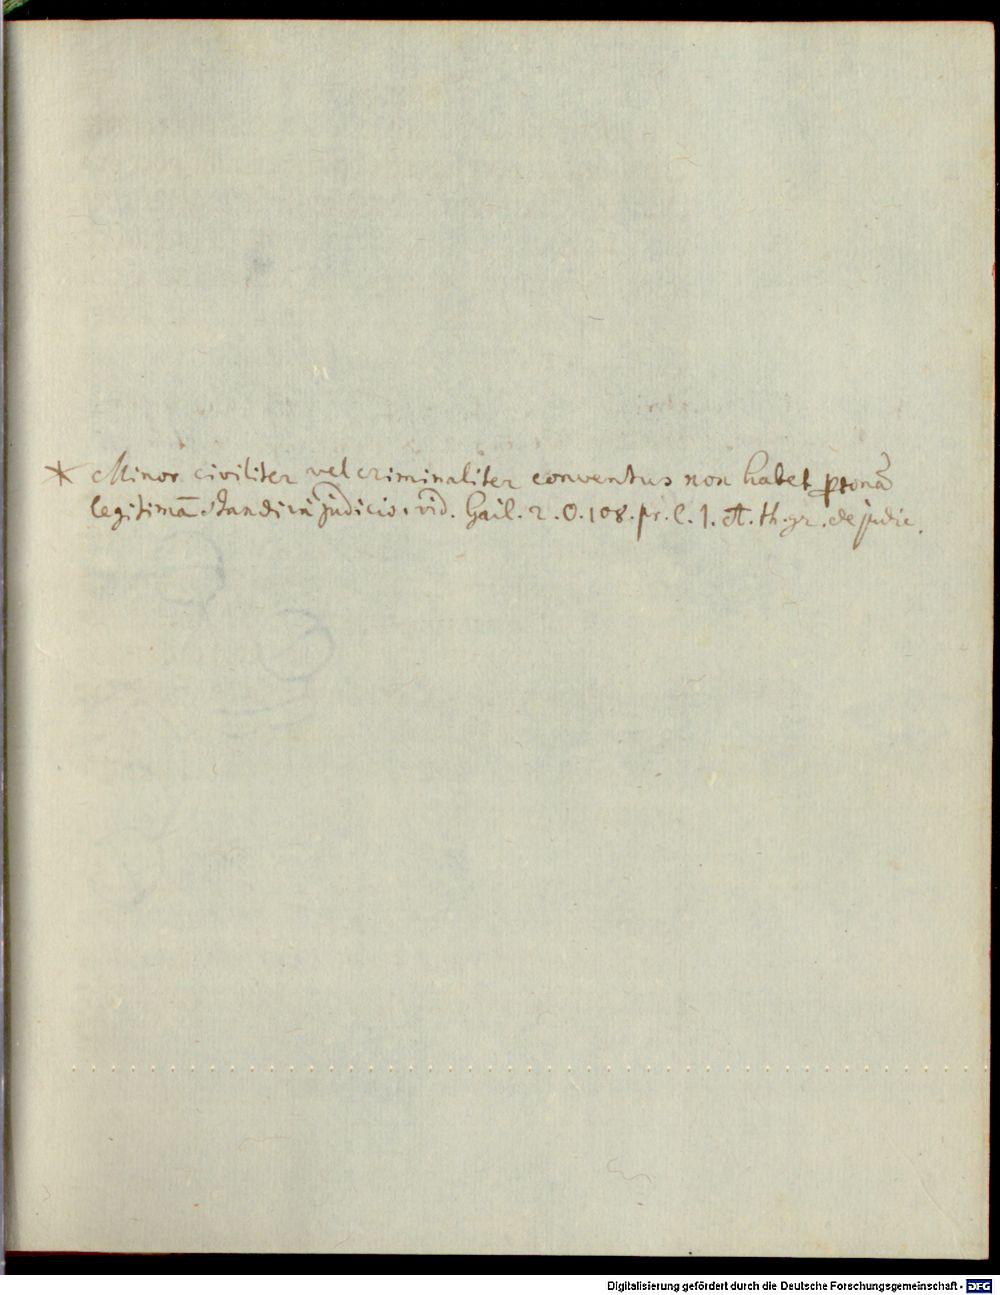 * Minor civiliter vel criminaliter conventus non habet psonã
legitimã standi in judicio. vid. Gail. 2. O. 108. pr. l. 1. ff. th. gr. de judic.
Digitalisierung gefördert durch die Deutsche Forschungsgemeinschaft - DFG